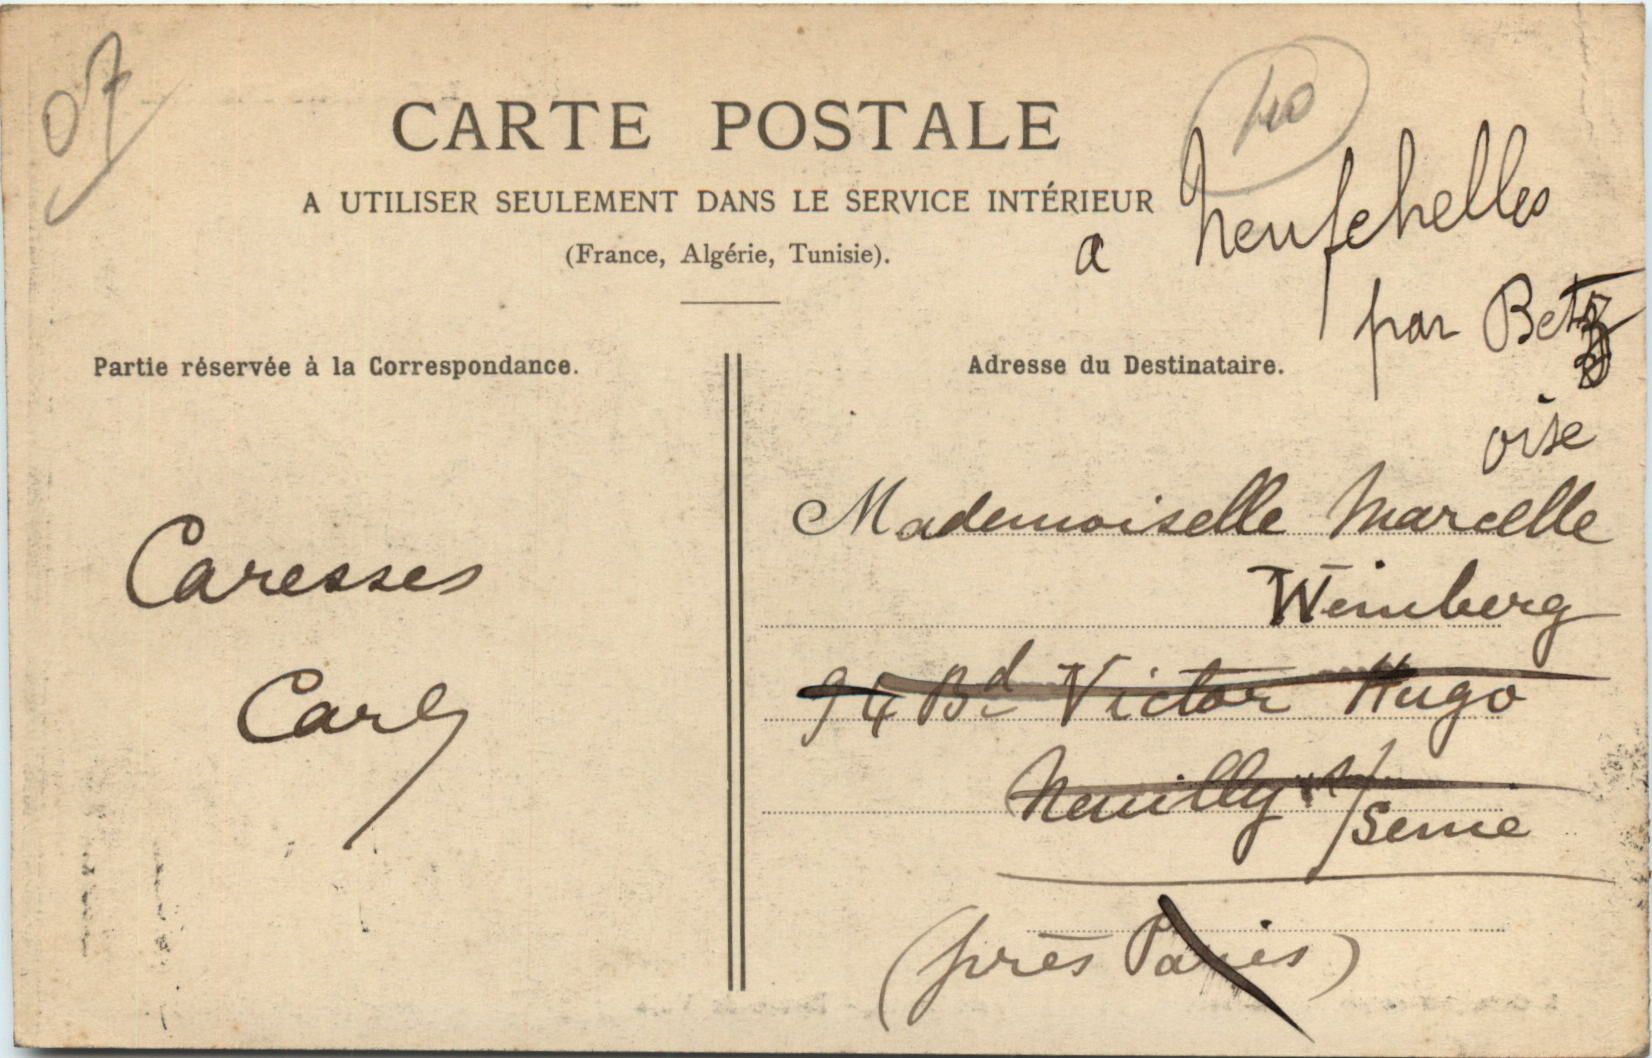 07
40
CARTE POSTALE
A UTILISER SEULEMENT DANS LE SERVICE INTÉRIEUR
(France, Algérie, Tunisie).
a Neufchelles
par Betz
oise
Partie réservée à la Correspondance.
Adresse du Destinataire.
Caresses
Carl
Mademoiselle Marcelle
Weinberg
94 Bd Victor Hugo
Neuilly s/Seine
(près Paris)